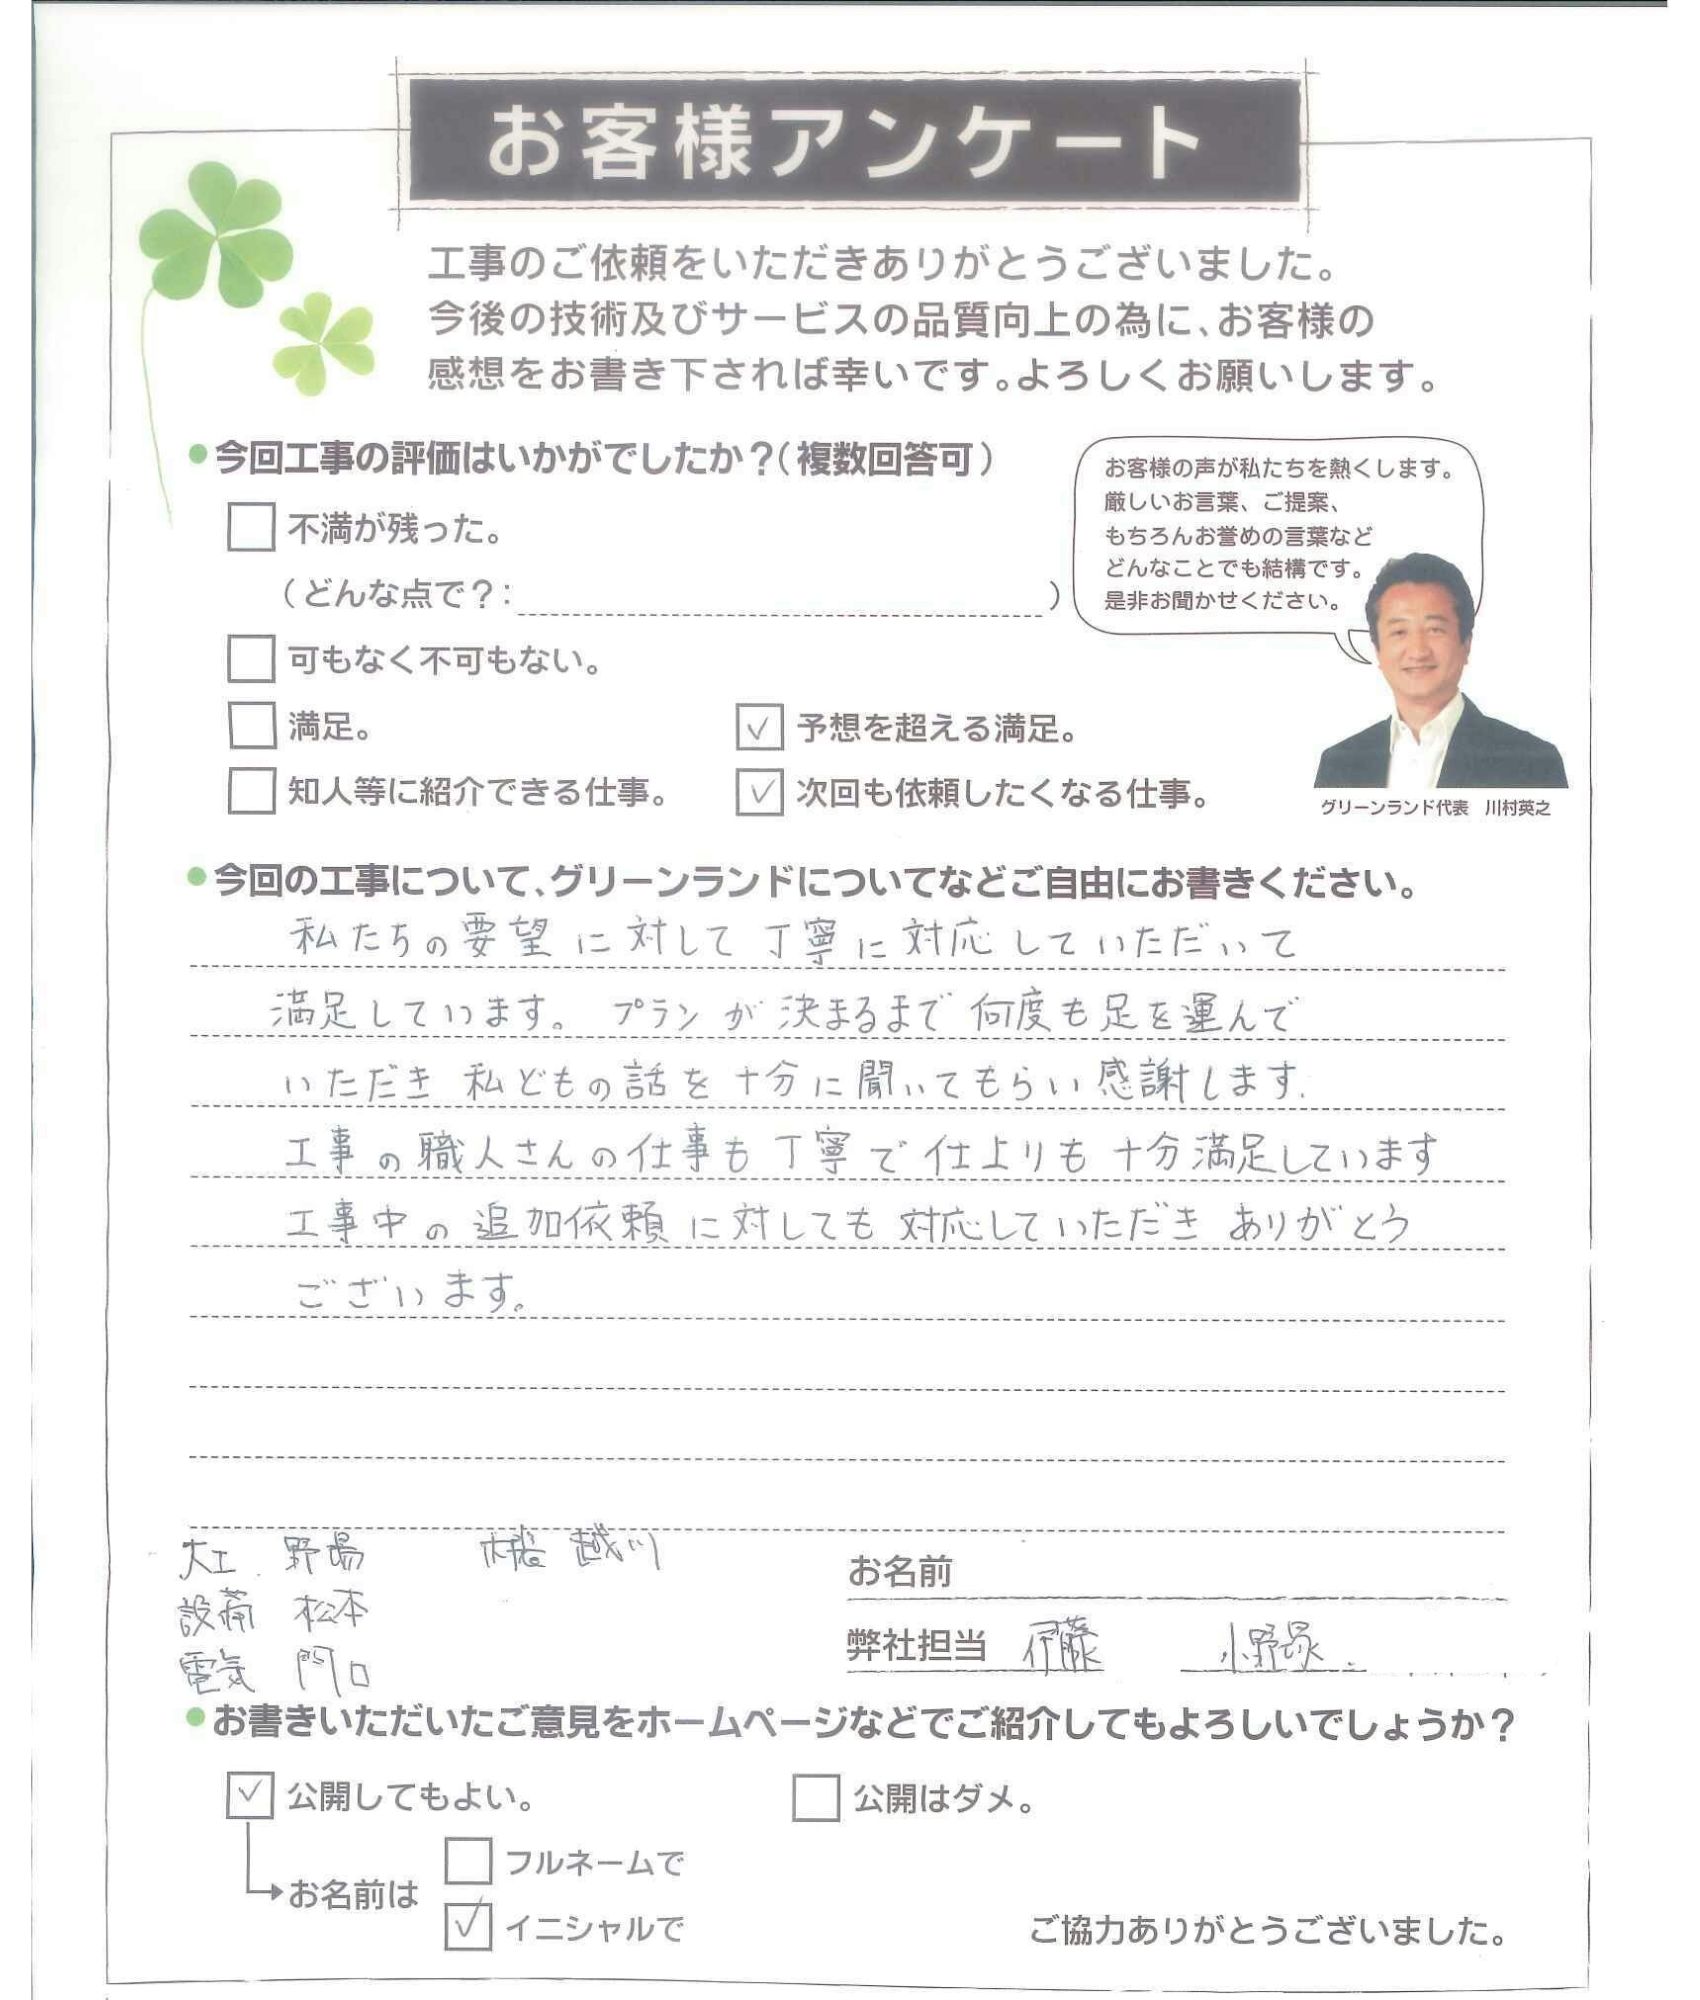 お客様アンケート
工事のご依頼をいただきありがとうございました。
今後の技術及びサービスの品質向上の為に、お客様の
感想をお書き下されば幸いです。よろしくお願いします。
今回工事の評価はいかがでしたか？（複数回答可）
不満が残った。
（どんな点で？：　）
可もなく不可もない。
満足。
✓ 予想を超える満足。
知人等に紹介できる仕事。
✓ 次回も依頼したくなる仕事。
お客様の声が私たちを熱くします。
厳しいお言葉、ご提案、
もちろんお誉めの言葉など
どんなことでも結構です。
是非お聞かせください。
グリーンランド代表　川村英之
今回の工事について、グリーンランドについてなどご自由にお書きください。
私たちの要望に対して丁寧に対応していただいて
満足しています。プランが決まるまで何度も足を運んで
いただき私どもの話を十分に聞いてもらい感謝します.
工事の職人さんの仕事も丁寧で仕上りも十分満足しています
工事中の追加依頼に対しても対応していただきありがとう
ございます。
大工 野場 越川
設備 松本
電気 門口
お名前
弊社担当 伊藤 小野塚
お書きいただいたご意見をホームページなどでご紹介してもよろしいでしょうか？
✓ 公開してもよい。
公開はダメ。
お名前は
フルネームで
✓ イニシャルで
ご協力ありがとうございました。